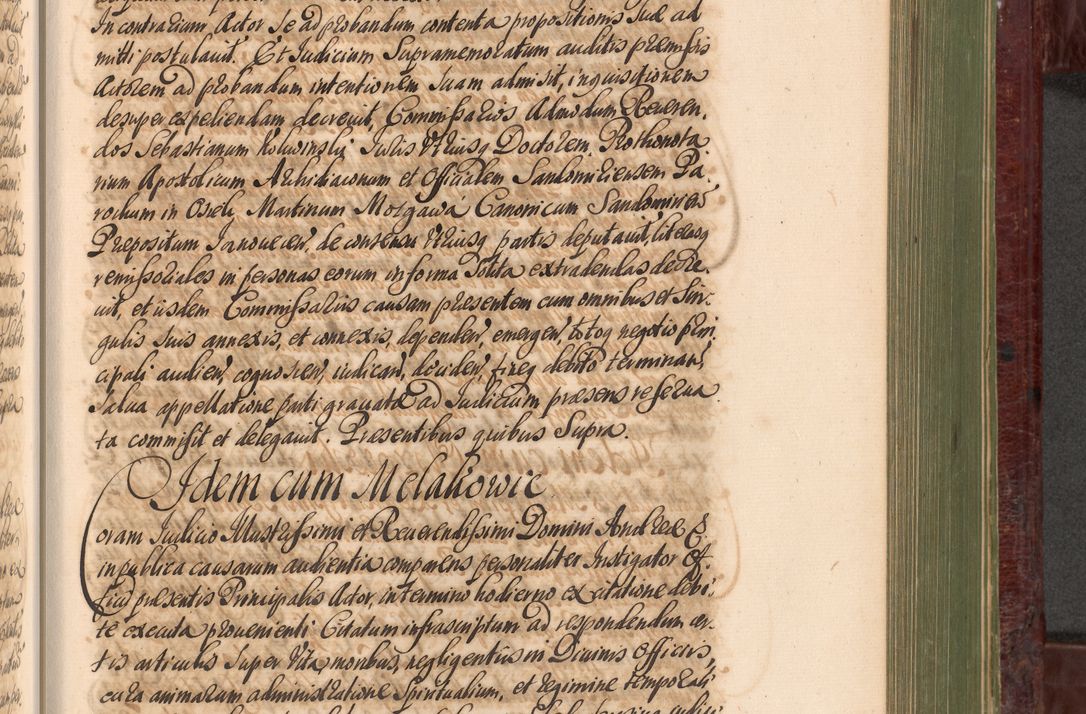 In contrarium Actor se ad probandum contenta propositionis suæ ad
mitti postulauit. Et Iudicium Supramemoratum auditis præmissis
Actorem ad probandum intentionem suam admisit, inquisitionem
desuper expediendam decreuit, Commissarios Admodum Reueren,
dos Sebastianum Iuris Vtriusq Doctorem Prothonota
rium Apostolicum Archidiaconum et Officialem Sandomiriensem Pa,
rochum in Martinum Mozgawa Canonicum Sandomirien
Præpositum Ianouicen, de consensu Vtriusq partis deputauit, literasq
remissoriales in personas eorum in forma solita extradendas decre,
uit, et iisdem Commissariis causam præsentem cum omnibus et sin,
gulis suis annexis, et connexis, dependen, emergen, totoq negotio prin
cipali audien, cognoscen, iudican, deciden, fineq debito terminan,
salua appellatione parti grauatæ ad Iudicium præsens reserua
ta commisit et delegauit. Præsentibus quibus Supra.
Idem cum Melakowic
oram Iudicio Illustrissimi et Reuerendissimi Domini Andreæ &
in publica causarum audientia comparens personaliter Instigator Of,
ficii præsentis Principalis Actor, in termino hodierno ex citatione debi,
te executa prouenienti Citatum infrascriptum ad respondendum cer
tis articulis super Vita, moribus, negligentiis in Diuinis Officiis,
cura animarum administratione Spiritualium, et regimine temporali